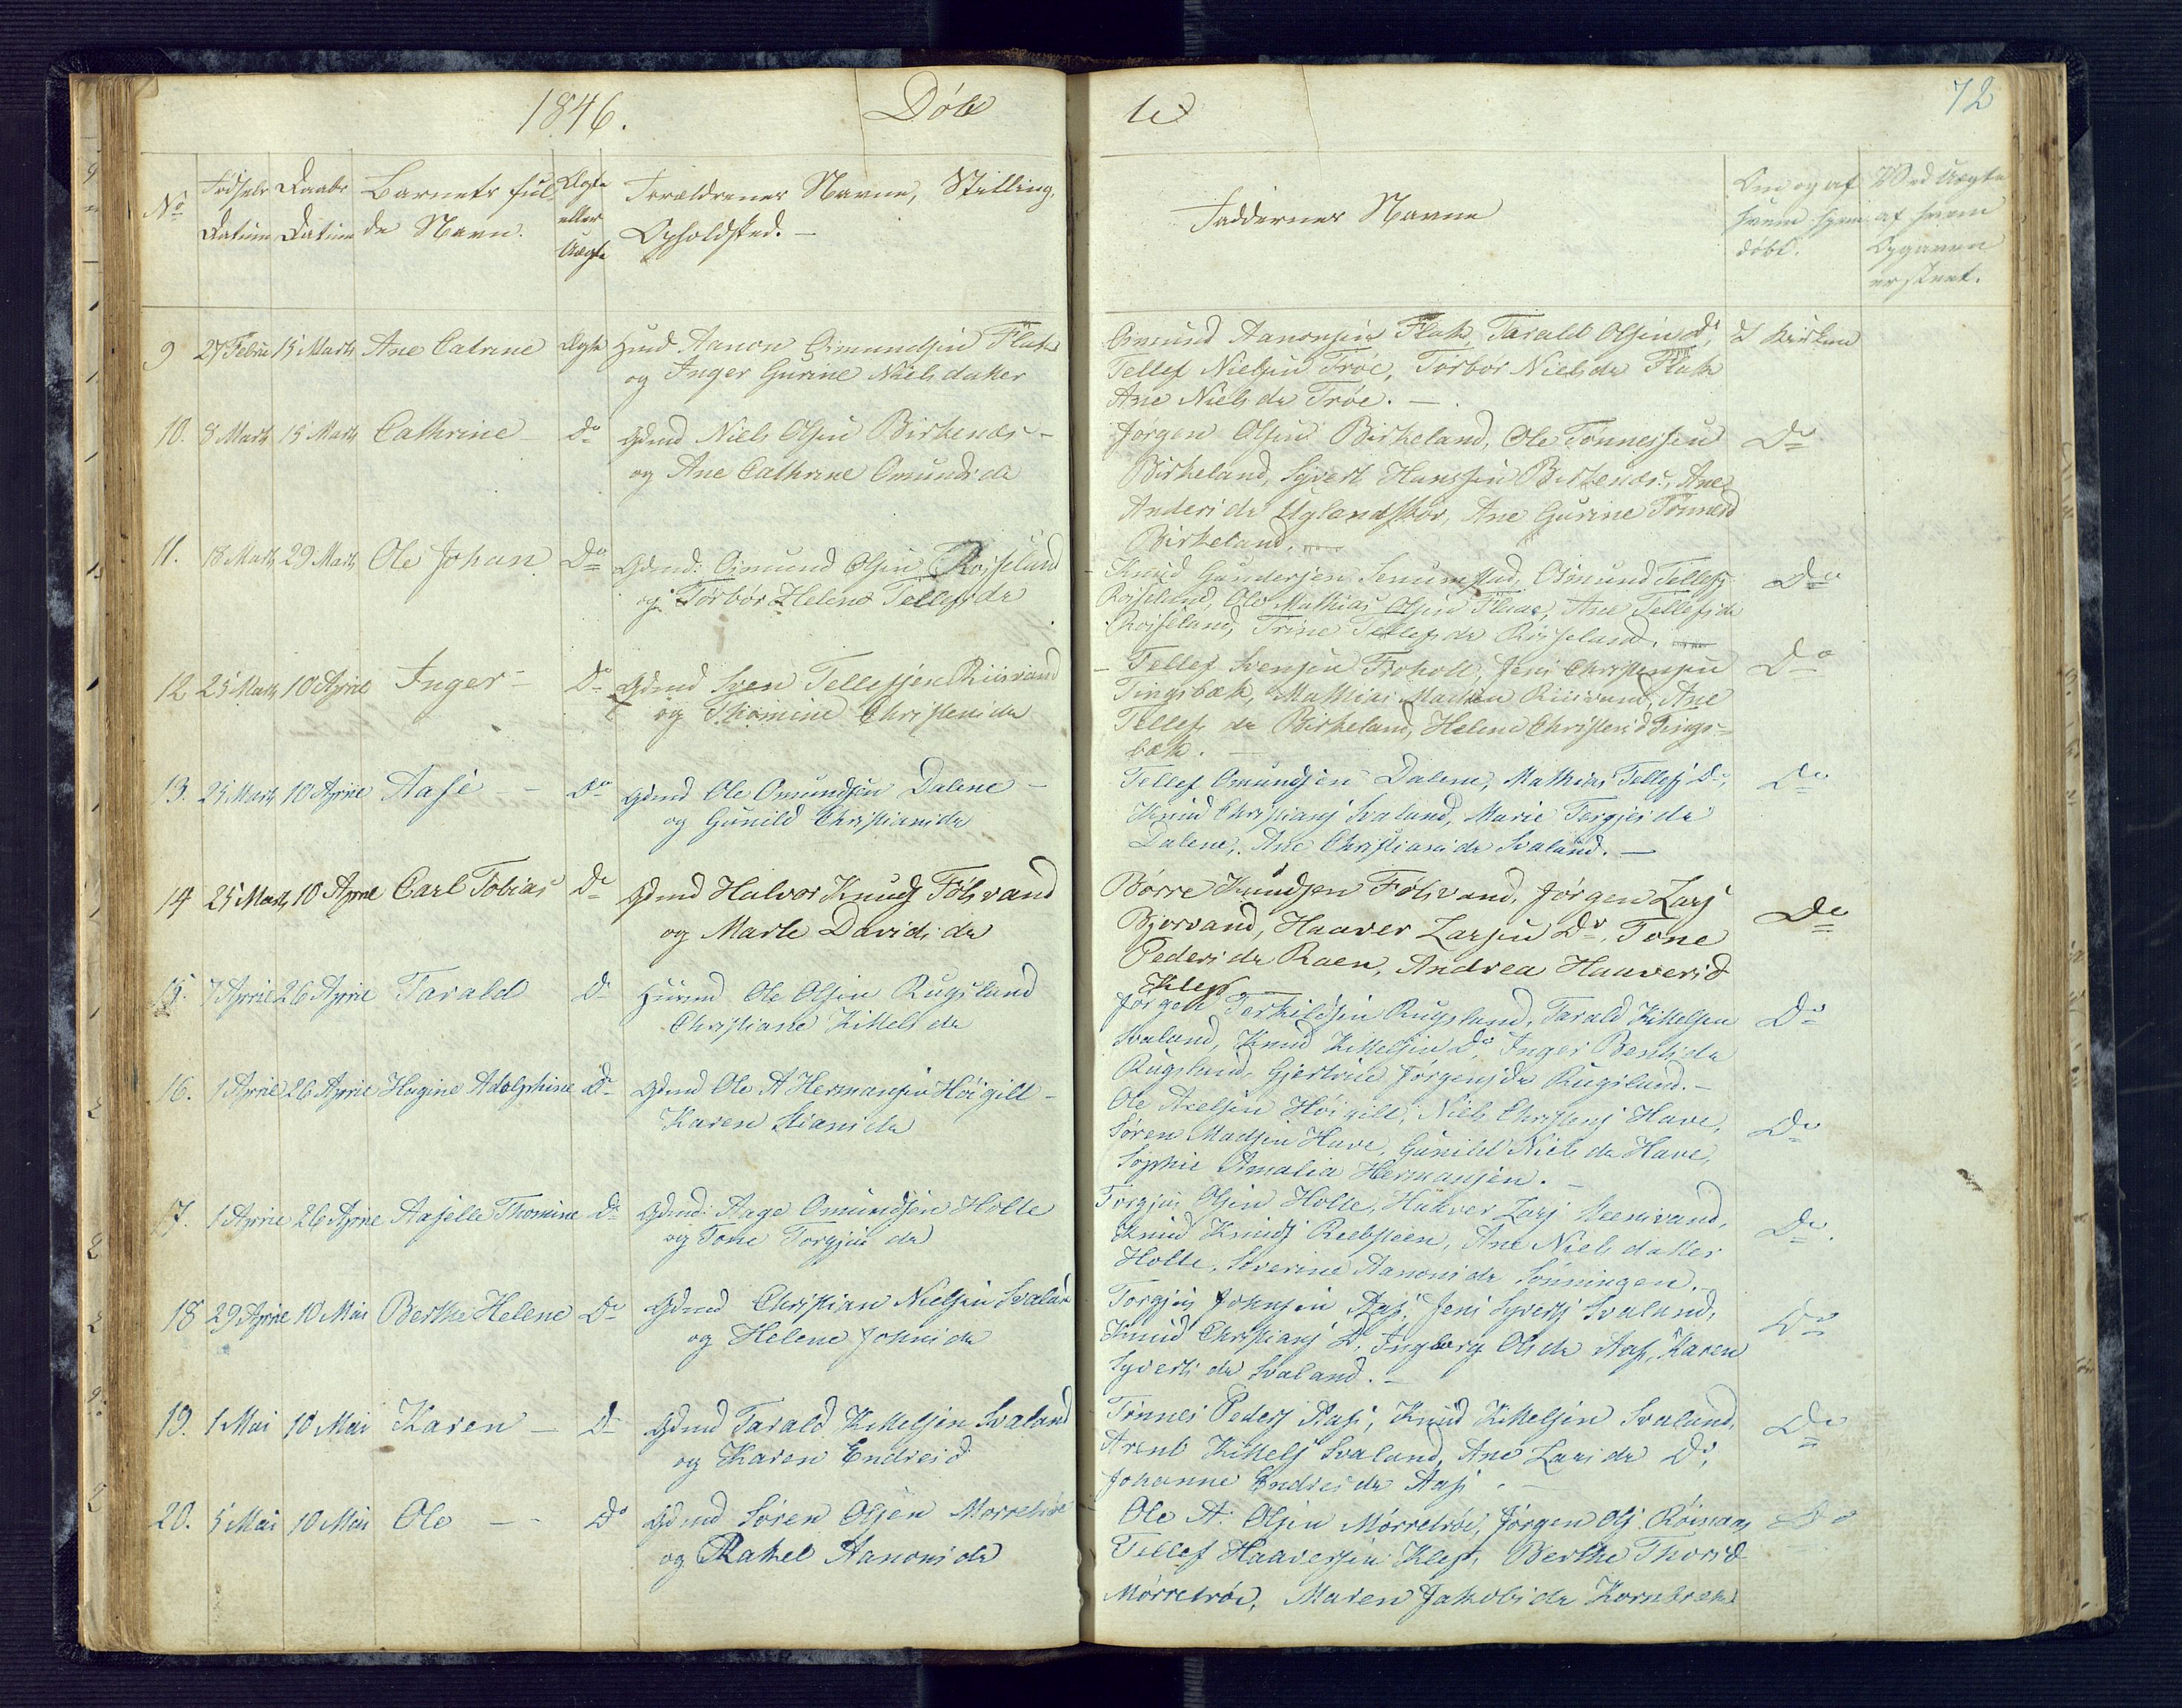 1846. Døb
te
72
No
Fødsels Datum
Daabs Datum
Barnets fulde Navn.
Ægte eller Uægte
Forældrenes Navne, Stilling, Opholdsted. –
Faddernes Navne
Om og af hvem hjemdøbt.
Ved Uægte af hvem Opgaven er skeet.
9 27 Febru 15 Marts Ane Catrine Ægte Huusmd Aanon Osmundsen Flak
og Inger Gurine Nielsdatter
Osmund Aanonsen Flak, Tarald Olsen Do, I Kirken
Tellef Nielsen Trøe, Torbor Nielsda Flak
Ane Nielsda Trøe. –
10. 8 Marts 15 Marts Cathrine – Do Gdmd Niels Olsen Birkenæs –
og Ane Cathrine Omundsda
Jørgen Olsen Birkeland, Ole Tønnessen Do
Birkeland, Syvert Hanssen Birkenæs, Ane
Andersda Uglandskor, Ane Gurine Tønnesd
Birkeland. –
11. 18 Marts 29 Marts Ole Johan Do Gdmd: Osmund Olsen Røiseland
og Torbor Helene Tellefsda
Knud Gundersen Senumstad, Osmund Tellefs Do
Røiseland, Ole Mathias Olsen Flaae, Ane Tellefsda
Røiseland, Trine Tellefsda Røiseland.
12 25 Marts 10 April Inger – Do Gdmd Sven Tellefsen Riisvand
og Thomine Christensda
Tellef Svensen Froholt, Jens Christensen Do
Tingsbæk, Mathias Madsen Riisvand, Ane
Tellefsda Birkeland, Helene Christensd Tings-
bæk. –
13. 25 Marts 10 April Aase – – Do Gdmd Ole Omundsen Dalene –
og Gunild Christiansda
Tellef Omundsen Dalene, Mathias Tellefs Do, Do
Knud Christians Svaland, Marie Torgjersda
Dalene, Ane Christiansda Svaland. –
14 25 Marts 10 April Carl Tobias Do Gdmd Halvor Knuds Tølsvand
og Marte Davidsda
Børre Knudsen Følsvand, Jørgen Lars Do
Bjorvand, Haaver Larsen Do, Tone
Pedersda Raen, Andrea Haaversd
Klep –
15. 7 April 26 April Tarald Do Huusmd Ole Olsen Rugsland
Christiane Kittelsda
Jørgen Terkildsen Rugsland, Tarald Kittelsen Do
Svaland, Knud Kittelsen Do, Inger Bentsda
Rugsland, Gjertrue Jørgensda Rugsland. –
16. 1 April 26 April Hagine Adolphine Do Gdmd Ole A Hermansen Høigilt –
Karen Stiansda
Ole Axelsen Høigilt, Niels Christens Have, Do
Søren Madsen Have, Gunild Nielsda Have,
Sophie Amalia Hermansen. –
17. 1 April 26 April Aaselle Thomine Do Gdmd: Aage Omundsen Holte
og Tone Torgjusda
Torgjus Olsen Holte, Halvor Lars Meenvand, Do.
Knud Knuds Reebsteen, Ane Nielsdatter
Holte, Severine Aanonsda Sønningen. –
18 29 April 10 Mai Berthe Helene Do Gdmd Christian Nielsen Svaland
og Helene Johnsda
Torgjus Johnsen Aas, Jens Syverts Svaland, Do
Knud Christians Do, Ingborg Olsda Aas, Karen
Syvertsda Svaland. –
19. 1 Mai 10 Mai Karen – Do Gdmd Tarald Kittelsen Svaland
og Karen Endresd
Tønnes Peders Aas, Knud Kittelsen Svaland, Do
Arent Kittels Svaland, Ane Larsda Do,
Johanne Endresda Aas –
20. 5 Mai 10 Mai Ole – – Do Gdmd Søren Olsen Mørretrøe
og Rakel Aanonsda
Ole A. Olsen Mørretrøe, Jørgen Ols Røinaas Do
Tellef Haaversen Klep, Berthe Thorsd
Mørretrøe, Maren Jakobsda Kornbrekke